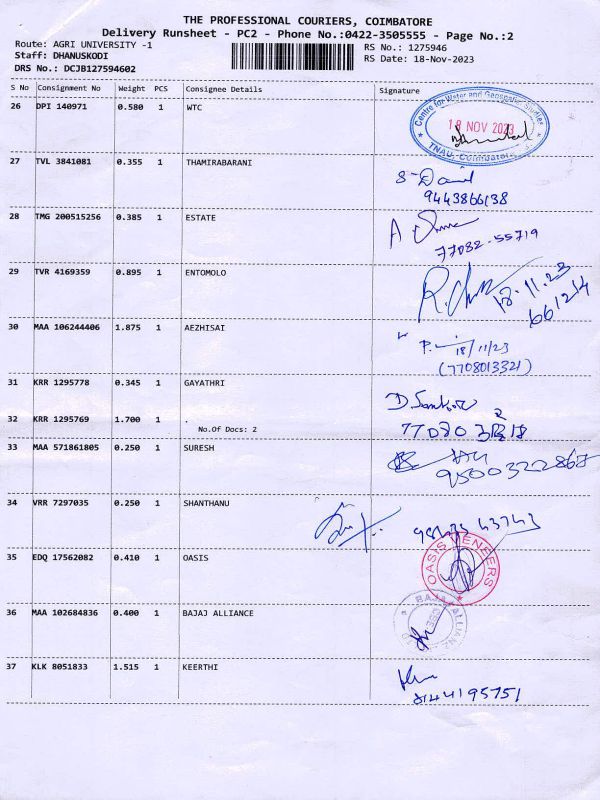 THE PROFESSIONAL COURIERS, COIMBATORE
Delivery Runsheet - PC2 - Phone No.:0422-3505555 - Page No.:2
Route: AGRI UNIVERSITY -1
RS No.: 1275946
Staff: DHANUSKODI
RS Date: 18-Nov-2023
DRS No.: DCJB127594602
S No Consignment No Weight PCS Consignee Details Signature
26 DPI 140971 0.580 1 WTC
Centre for Water and Geospatial Studies
18 NOV 2023
TNAU, Coimbatore
27 TVL 3841081 0.355 1 THAMIRABARANI
9443866138
28 TMG 200515256 0.385 1 ESTATE
77082-55719
29 TVR 4169359 0.895 1 ENTOMOLO
18.11.23
661214
30 MAA 106244406 1.875 1 AEZHISAI
18/11/23
(7708013321)
31 KRR 1295778 0.345 1 GAYATHRI
32 KRR 1295769 1.700 1 .
No.Of Docs: 2
33 MAA 571861805 0.250 1 SURESH
9500322867
34 VRR 7297035 0.250 1 SHANTHANU
43743
35 EDQ 17562082 0.410 1 OASIS
OASIS VENEERS
36 MAA 102684836 0.400 1 BAJAJ ALLIANCE
BAJAJ ALLIANZ
37 KLK 8051833 1.515 1 KEERTHI
8144195751